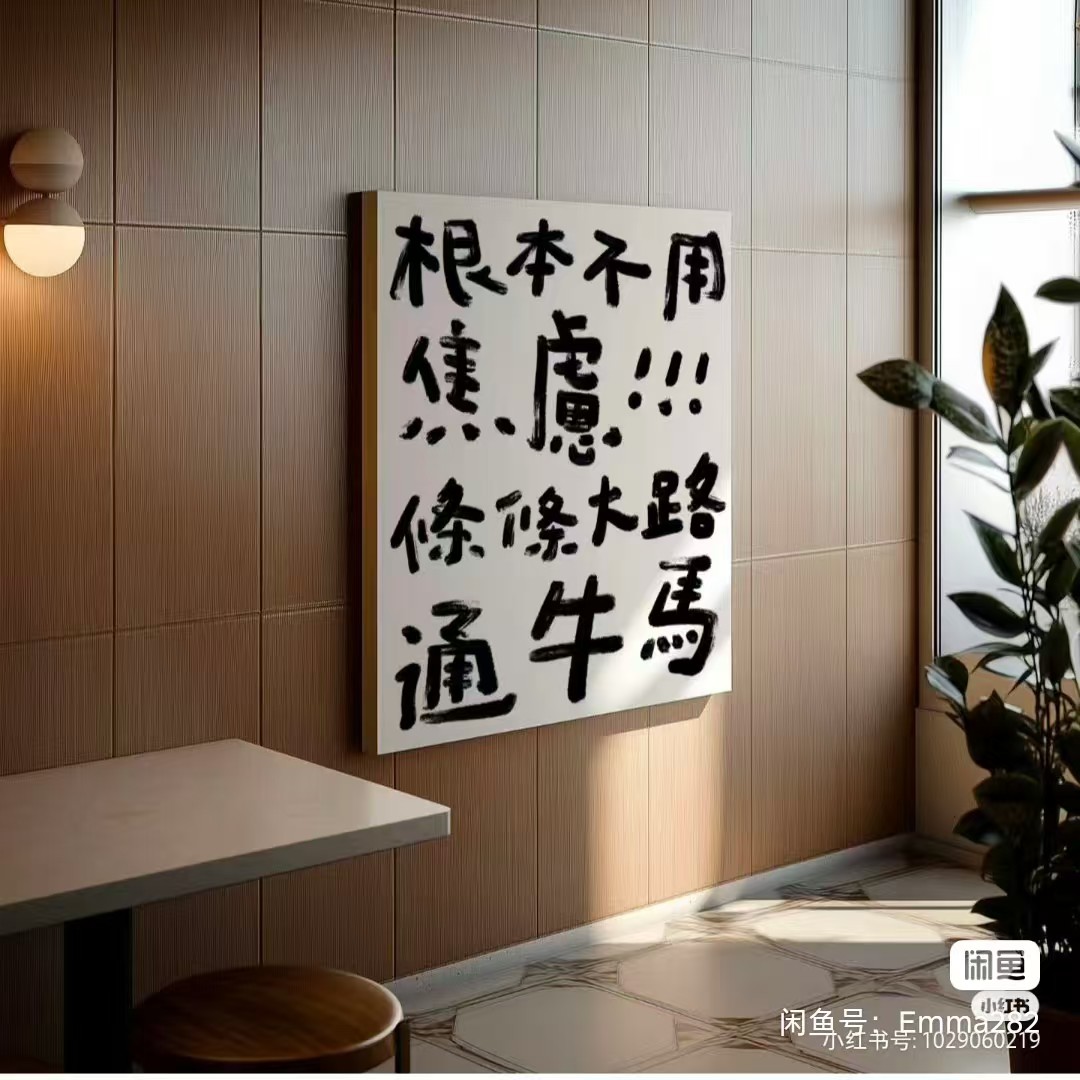 根本不用
焦慮!!!
條條大路
通牛馬
闲鱼
小红书
闲鱼号：Emma282
小红书号: 1029060219